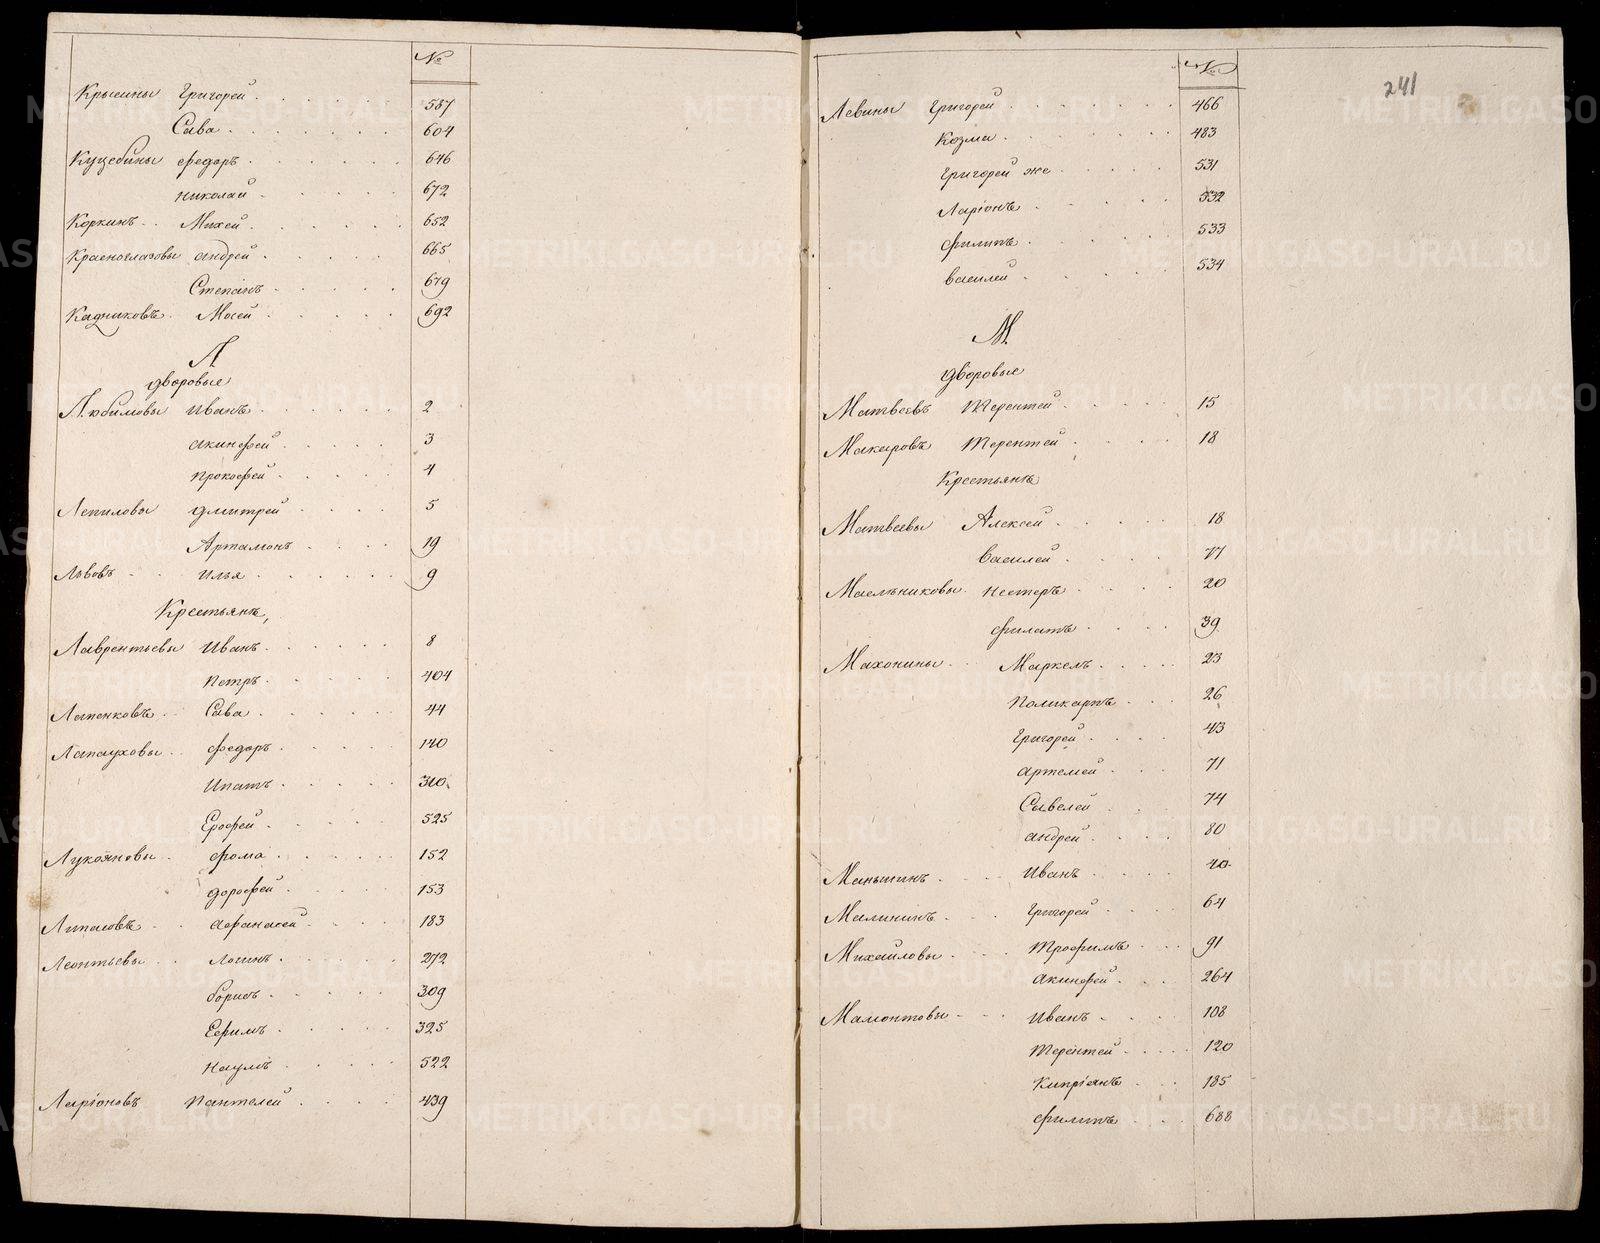 №
Крысины Григорей 587
Сава 604
Куцебины федоръ 646
николай 672
Коркинъ Михей 652
Красноглазовы андрей 665
Степанъ 679
Кадниковъ Мосей 692
Л.
дворовые
Любимовы иванъ 2
акинфей 3
прокофей 4
Лепиловы дмитрей 5
Артамонъ 19
Львовъ илья 9
Крестьянъ,
Лаврентьевы иванъ 8
петръ 404
Лапенковъ Сава 44
Лапауховы федоръ 140
ипатъ 310
Ерофей 525
Лукояновы фома 152
дорофей 153
Липасовъ афанасей 183
Леонтьевы логинъ 272
борисъ 309
Ефимъ 325
наумъ 522
Ларіоновъ пантелей 439
№
241
Левины Григорей 466
Козма 483
Григорей же 531
Ларіонъ 532
филипъ 533
василей 534
М.
дворовые
Матвеевъ Терентей 15
Макаровъ Терентей 18
Крестьянъ
Матвеевы Алексей 18
василей 77
Маельниковы нестеръ 20
филатъ 39
Махонины Маркелъ 23
поликарпъ 26
Григорей 43
артемей 71
Савелей 74
андрей 80
Маньшинъ иванъ 40
Малининъ Григорей 64
Михайловы трофимъ 91
акинфей 264
Мамонтовы иванъ 108
терентей 120
Кипріянъ 185
филипъ 688
METRIKI.GASO-URAL.RU